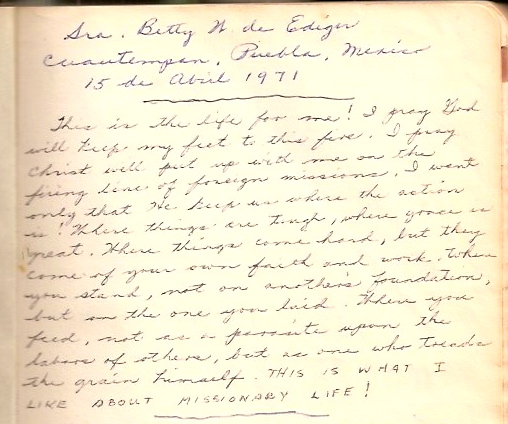 Sra. Betty W. de Ediger
Cuautempan, Puebla, Mexico
15 de Abril 1971
This is the life for me! I pray God
will keep my feet to this fire. I pray
Christ will put up with me on the
firing line of foreign missions. I want
only that He keep us where the action
is! Where things are tough, where grace is
great. Where things come hard, but they
come of your own faith and work. Where
you stand, not on another's foundation,
but on the one you laid. Where you
feed, not as a parasite upon the
labors of others, but as one who treads
the grain himself. THIS IS WHAT I
LIKE ABOUT MISSIONARY LIFE!